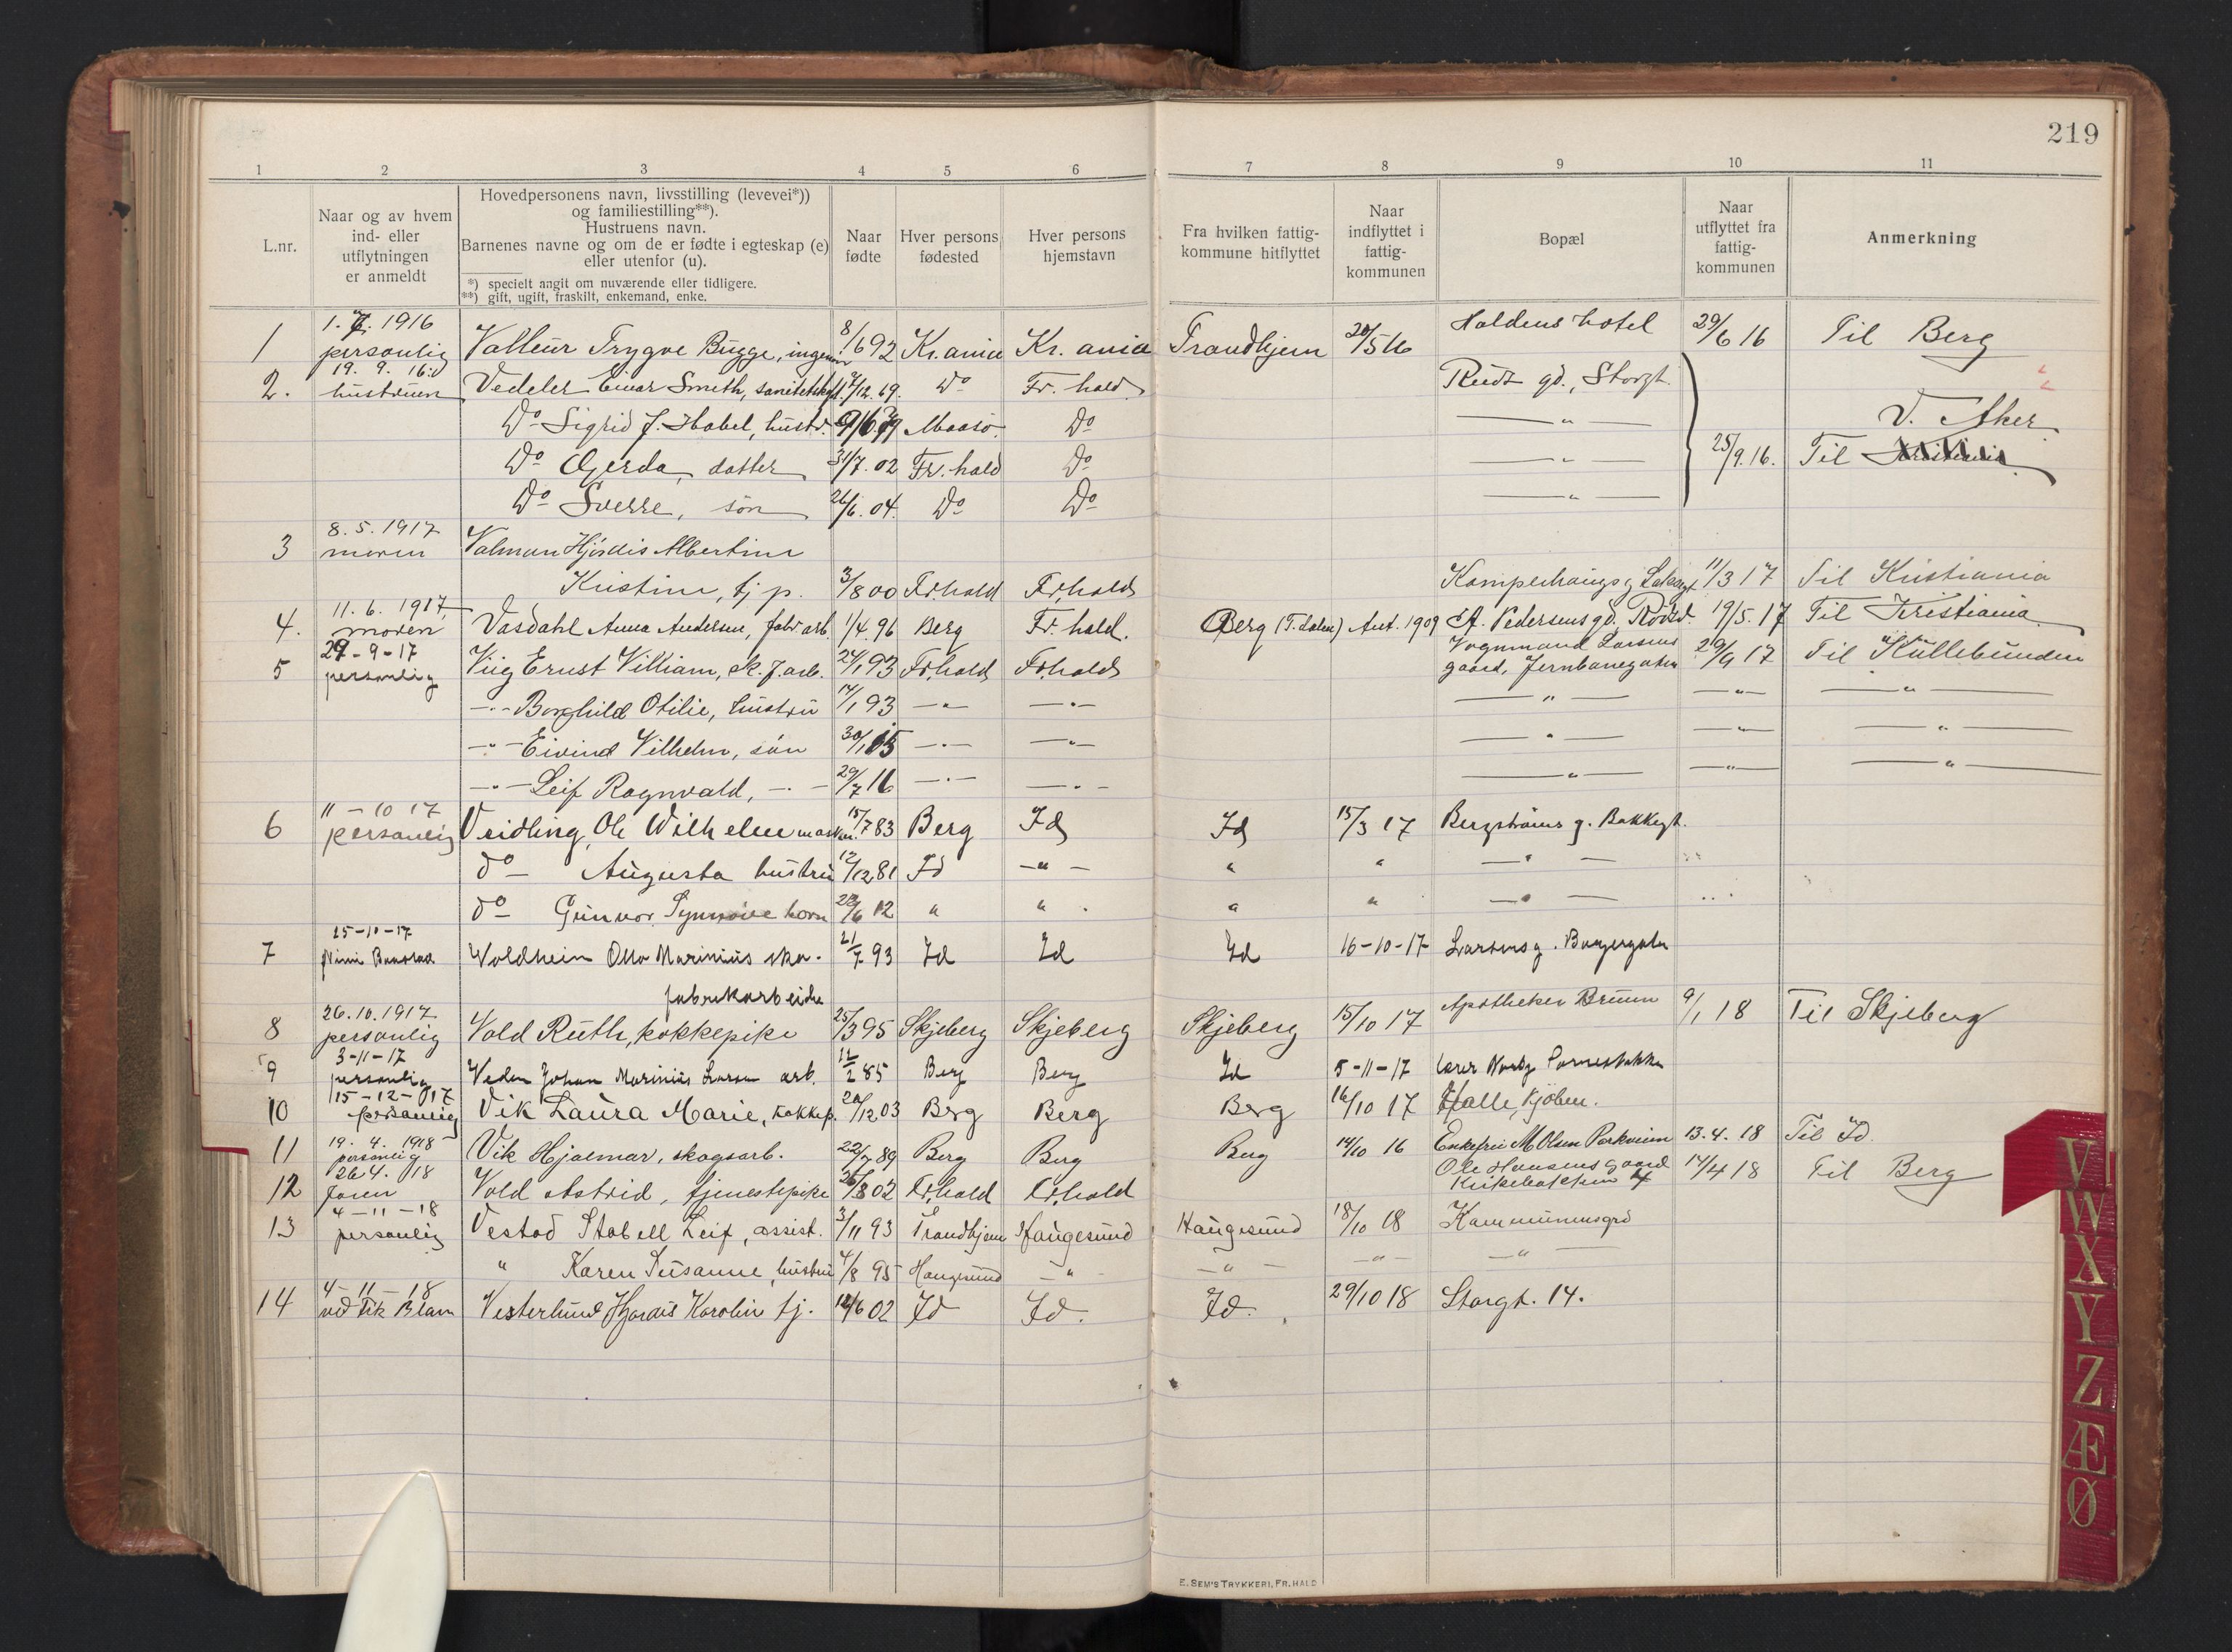 219
1 2 3 4 5 6 7 8 9 10 11
L.nr.
Naar og av hvem
ind- eller
utflytningen
er anmeldt
Hovedpersonens navn, livsstilling (levevei*))
og familiestilling**).
Hustruens navn.
Barnenes navne og om de er fødte i egteskap (e)
eller utenfor (u).
*) specielt angit om nuværende eller tidligere.
**) gift, ugift, fraskilt, enkemand, enke.
Naar
fødte
Hver persons
fødested
Hver persons
hjemstavn
Fra hvilken fattig-
kommune hitflyttet
Naar
indflyttet i
fattig-
kommunen
Bopæl
Naar
utflyttet fra
fattig-
kommunen
Anmerkning
1.7.1916
1 personlig Valleur Trygve Bugge, ingeniør 8/6 92 Kr.ania Kr.ania Trondhjem 20/5 16 Haldens hotel 29/6 16 Til Berg
19. 9. 16
2. hustruen Vedeler Einar Smith, 12.69. Do Fr.hald Ruds gd., Storgt.
Do Sigrid J. Habel, hustr. Maasø. Do — " — V. Aker
Do Gjerda, datter 31/7.02 Fr.hald Do — " — 25/9.16. Til
Do Sverre, søn 26/6.04. Do Do — " —
8.5.1917
3 moren Valman Hjørdis Albertine
Kristine, tj p. 3/8 00 Fr.hald Fr.hald 11/3 17 Til Kristiania
11.6.1917
4. moren Vasdahl Anna Andersen, fabr.arb. 1/4.96 Berg Fr.hald. Berg (T.dalen) Aut. 1909 A. Pedersens gd. Rødsd. 19/5.17 Til Kristiania
29-9-17 Vognmand Larsens
5 personlig Viig Ernst William, sk.f.arb. 24/1 93 Fr.hald Fr.hald gaard, Jernbanegaten 29/9 17 Til Kullebunden
— " — Borghild Otilie, hustru 14/1 93 — " — — " — — " — — " — — " —
— " — Eivind Vilhelm, søn 30/1 15 — " — — " — — " — — " — — " —
— " — Leif Ragnvald, — " — 29/7 16 — " — — " — — " — — " — — " —
11-10 17
6 personlig Vridling, Ole Wilhelm 15/7 83 Berg Id Id 15/3 17 Bergstrøms g. Bakkegt.
do — Augusta hustru 12/12 81 Id — " — " " — " —
do — Gunvor Synnøve barn 28/6 12 " " " " — " —
25-10-17
7 Woldheim Otto Marinius ska. 21/7 93 Id Id Id 16-10-17 Larsens g. Borgergaten
fabrikarbeider
26.10.1917
8 personlig Vold Ruth, kokkepike 25/3 95 Skjeberg Skjeberg Skjeberg 15/10 17 Apotheker Bruun 9/1 18 Til Skjeberg
3-11-17
9 personlig Veden Johan Marinius Larsen arb. 12/2 85 Berg Berg Id 5-11-17
15-12-17
10 personlig Vik Laura Marie, kokkep. 20/12 03 Berg Berg Berg 16/10 17 Halle, Kjøbm.
19.4.1918
11 personlig Vik Hjalmar, skogsarb. 22/7 89 Berg Berg Berg 14/10 16 Enkefru M Olsen Parkveien 13.4.18 Til Id.
26 4. 18 Ole Hansens gaard
12 Vold Astrid, tjenestepike 25/8 02 Fr.hald Fr.hald Kirkebakken 4 14/4 18 Til Berg
4-11-18
13 personlig Vestad Stabell Leif, assist. 3/11 93 Trondhjem Haugesund Haugesund 18/10 18 Kommunensgrd
" Karen Susanne, hustru 4/8 95 Haugesund — " — — " — — " — — " —
4-11-18
14 Vesterlund Hjørdis Karolin tj. 12/6 02 Id Id. Id. 29/10 18 Storgt. 14.
E. SEM'S TRYKKERI, FR.HALD
V
W
X
Y
Z
Æ
Ø